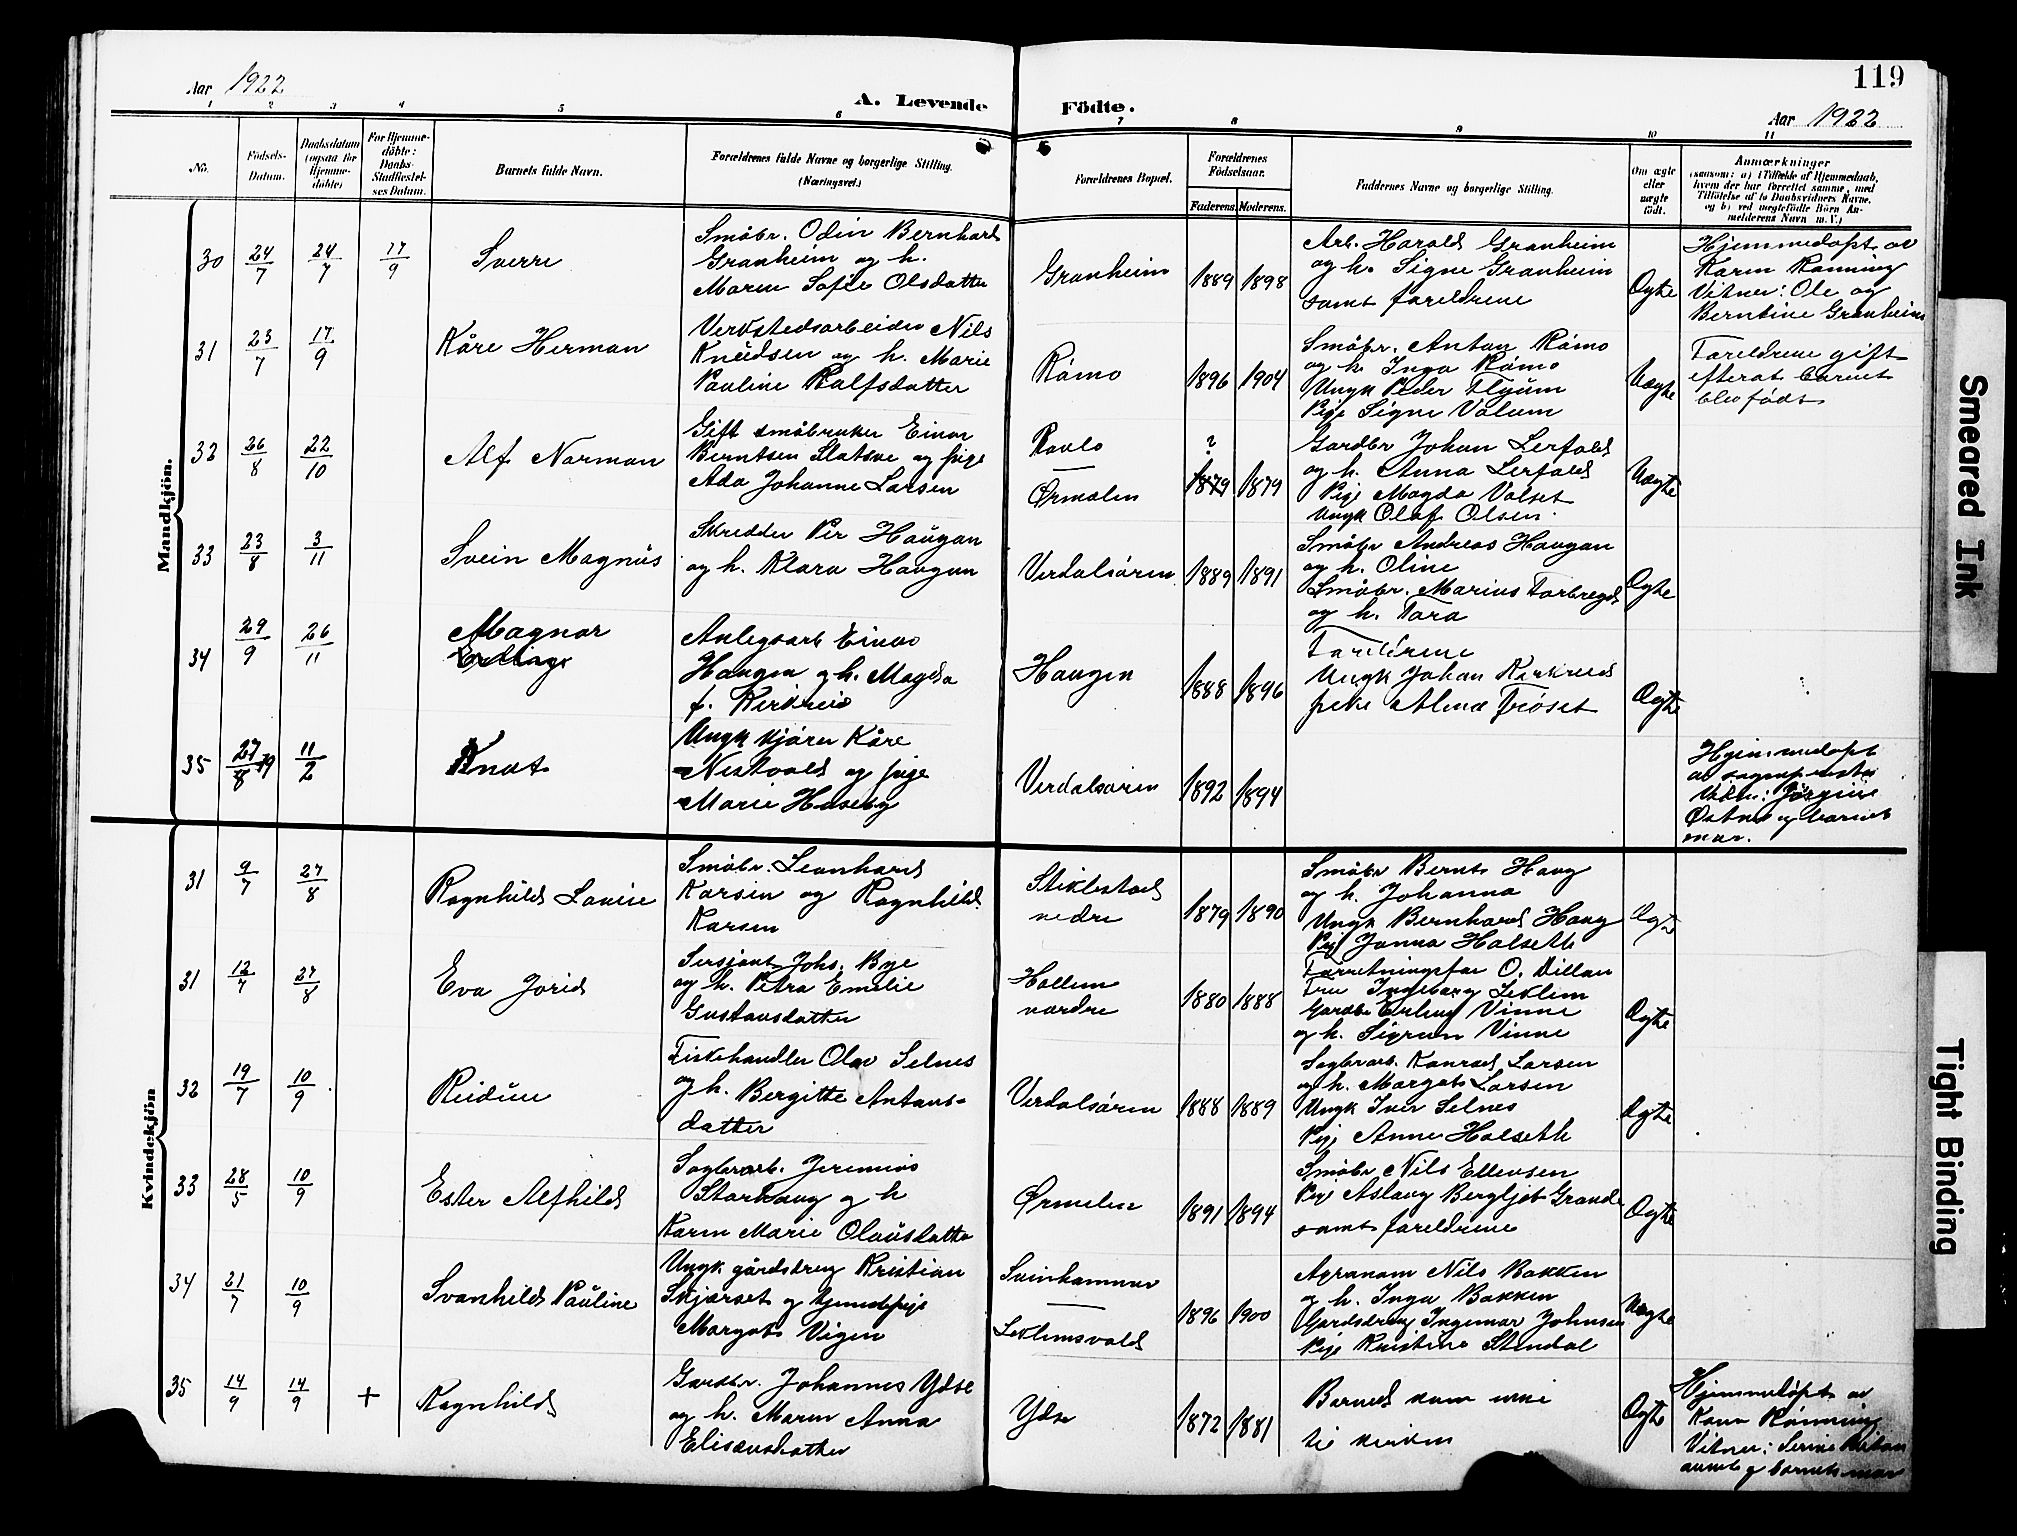 Aar 1922
A. Levende
Födte.
119
Aar 1922
1 2 3 4 5 6 7 8 9 10 11
No.
Födsels-
Datum.
Daabsdatum
(ogsaa for
Hjemme-
döbte)
For Hjemme-
döbte:
Daabs-
Stadfæstel-
ses Datum.
Barnets fulde Navn.
Forældrenes fulde Navne og borgerlige Stilling.
(Næringsvei.)
Forældrenes Bopæl.
Forældrenes
Födselsaar.
Faderens. Moderens.
Faddernes Navne og borgerlige Stilling.
Om ægte
eller
uægte
födt.
Anmærkninger
(saasom: a) i Tilfælde af Hjemmedaab,
hvem der har forrettet samme, med
Tilföielse af to Daabsvidners Navne,
og b) ved uægtefödte Börn An-
melderens Navn m.V.)
Mandkjön.
30 24/7 24/7 17/9
Sverre
Småbr. Odin Bernhard
Granheim og h.
Maren Sofie Olsdatter
Granheim
1889 1898
Arb. Harald Granheim
og h. Signe Granheim
samt foreldrene
Ægte
Hjemmedøpt av
Karen Rønning
Vitner: Ole og
Berntine Granheim
31 23/7 17/9
Kåre Herman
Verkstedsarbeider Nils
Knudsen og h. Marie
Pauline Ralfsdatter
Råmo
1896 1904
Småbr. Anton Råmo
og h. Inga Råmo
Ungk Peder Flyum
Pige Signe Volum
Uægte
Foreldrene gift
efterat barnet
blev født
32 26/8 22/10
Alf Norman
Gift småbruker Einar
Berntsen Slatsve og pige
Ada Johanne Larsen
Ravlo
Ørmelen
? 1879 1879
Gardbr Johan Lerfald
og h. Anna Lerfald
Pige Magda Valset
Ungk Olaf Olsen.
Uægte
33 23/8 3/11
Svein Magnus
Skredder Per Haugan
og h. Klara Haugan
Verdalsøren
1889 1891
Småbr Andreas Haugan
og h. Oline
Småbr. Marius Forbregd
og h. Tora
Ægte
34 29/9 26/11
Magnar
Erling
Anlegsarb Einar
Haugen og h. Magda
f. Kirkreid
Haugen
1888 1896
Foreldrene
Ungk Johan Kirkreid
pike Alma Frøset
Ægte
35 27/8 19 11/2
Knut
Ungk kjører Kåre
Nestvold og pige
Marie Huseby
Verdalsøren
1892 1894
Hjemmedøpt
av sognepresten
Vitn: Jørgine
Østnes og barnets
mor.
Kvindekjön
31 9/7 27/8
Ragnhild Lovise
Småbr. Leonhard
Karsen og Ragnhild
Karsen
Stiklestad
nedre
1879 1890
Småbr Bernt Haug
og h. Johanna
Ungk Bernhard Haug
Pige Janna Halseth
Ægte
31 12/7 27/8
Eva Jorid
Sersjant Johs. Bye
og h. Petra Emelie
Gustavsdatter
Hallem
nordre
1880 1888
Forretningsfør O. Villan
Fru Ingeborg Leklem
Gardbr Erling Vinne
og h. Sigrun Vinne
Ægte
32 19/7 10/9
Reidun
Fiskehandler Olav Selnes
og h. Bergitte Antons-
datter
Verdalsøren
1888 1889
Sagbrarb. Konrad Larsen
og h. Margot Larsen
Ungk Iver Selnes
Pige Anne Halseth
Ægte
33 28/5 10/9
Ester Alfhild
Sagbrarb. Jeremias
Storhaug og h
Karen Marie Olausdatter
Ørmelen
1891 1894
Småbr Nils Ellevsen
Pige Aslaug Bergljot Grande
samt foreldrene
Ægte
34 21/7 10/9
Svanhild Pauline
Ungk gårdsdreng Kristian
Skjærset og hjemmepige
Margot Vigen
Svinhammer
Leklemsvald
1896 1900
Agronom Nils Bakken
og h. Inga Bakken
Gardsdreng Ingemar Johnsen
Pige Kristine Stendal
Uægte
35 14/9 14/9 +
Ragnhild
Gardbr. Johannes Ydse
og h. Maren Anna
Elisæusdatter
Ydse
1872 1881
Barnet kom ikke
til kirken
Ægte
Hjemmedøpt av
Karen Rønning
Vitner: Serine
og barnets mor
Smeared Ink
Tight Binding